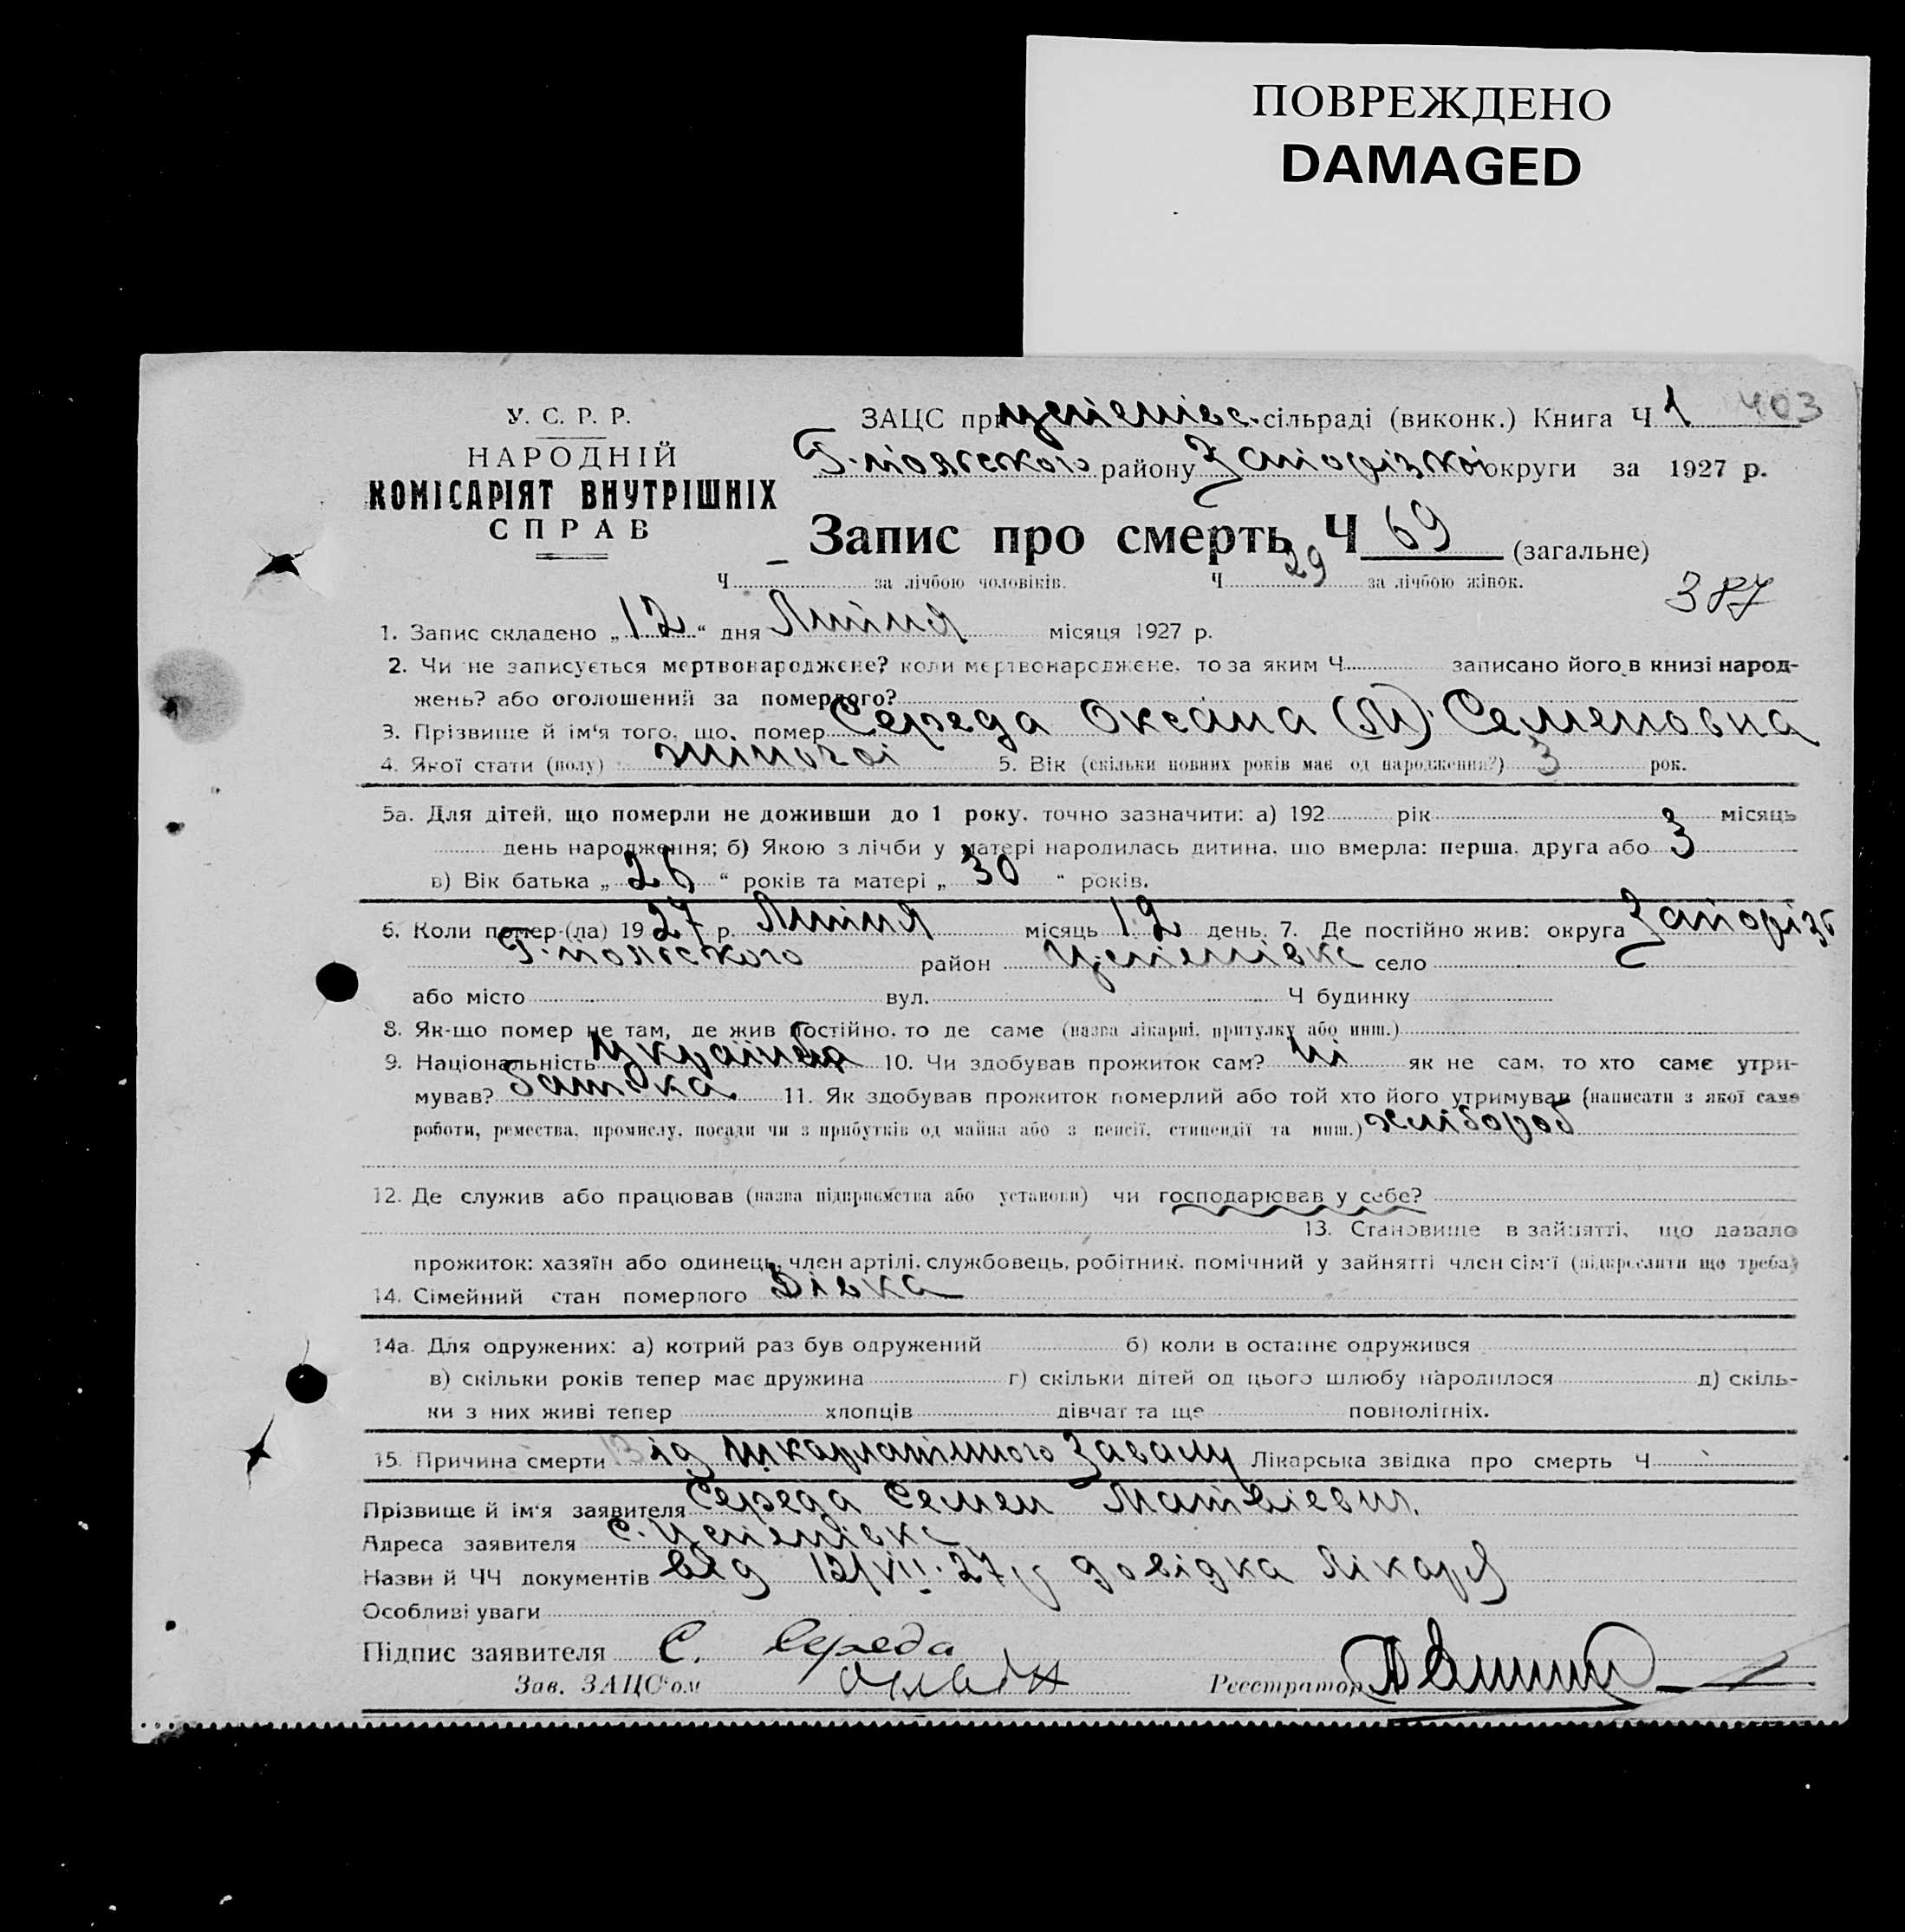 ПОВРЕЖДЕНО
DAMAGED
У. С. Р. Р.
НАРОДНІЙ
КОМІСАРІЯТ ВНУТРІШНІХ
СПРАВ
ЗАЦС при Успенівс. сільраді (виконк.) Книга Ч 1 403
району Запорізкої округи за 1927 р.
Запис про смерть Ч 69 (загальне)
Ч – за лічбою чоловіків. Ч 29 за лічбою жінок.
387
1. Запис складено „12“ дня Липня місяця 1927 р.
2. Чи не записується мертвонароджене? коли мертвонароджене, то за яким Ч записано його в книзі народ-
жень? або оголошений за померлого?
3. Прізвище й ім'я того, що помер Середа Оксана (М) Семеновна
4. Якої стати (полу) жіночої 5. Вік (скільки повних років має од народження?) 3 рок.
5а. Для дітей, що померли не доживши до 1 року, точно зазначити: а) 192 рік місяць
день народження; б) Якою з лічби у матері народилась дитина, що вмерла: перша, друга або 3
в) Вік батька „26“ років та матері „30“ років.
6. Коли помер-(ла) 1927 р. Липня місяць 12 день. 7. Де постійно жив: округа Запоріз
район Успенівка село
або місто вул. Ч будинку
8. Як-що помер не там, де жив постійно, то де саме (назва лікарні, притулку або инш.)
9. Національність українка 10. Чи здобував прожиток сам? ні як не сам, то хто саме утри-
мував? батька. 11. Як здобував прожиток померлий або той хто його утримував (написати з якої саме
роботи, ремества, промислу, посади чи з прибутків од майна або з пенсії, стипендії та инш.) хлібороб
12. Де служив або працював (назва підприємства або установи) чи господарював у себе?
13. Становище в зайнятті, що давало
прожиток: хазяїн або одинець, член артілі, службовець, робітник, помічний у зайнятті член сім'ї (підкреслити що треба)
14. Сімейний стан померлого Дівка
14а. Для одружених: а) котрий раз був одружений б) коли в останнє одружився
в) скільки років тепер має дружина г) скільки дітей од цього шлюбу народилося д) скіль-
ки з них живі тепер хлопців дівчат та ще повнолітніх.
15. Причина смерти Від шкарлатінного Завалу Лікарська звідка про смерть Ч
Прізвище й ім'я заявителя Середа Семен Матвієвич.
Адреса заявителя с. Успенівка
Назви й ЧЧ документів від 12/VII-27 р довідка Лікаря
Особливі уваги
Підпис заявителя С. Середа
Зав. ЗАЦС'ом Реєстратор